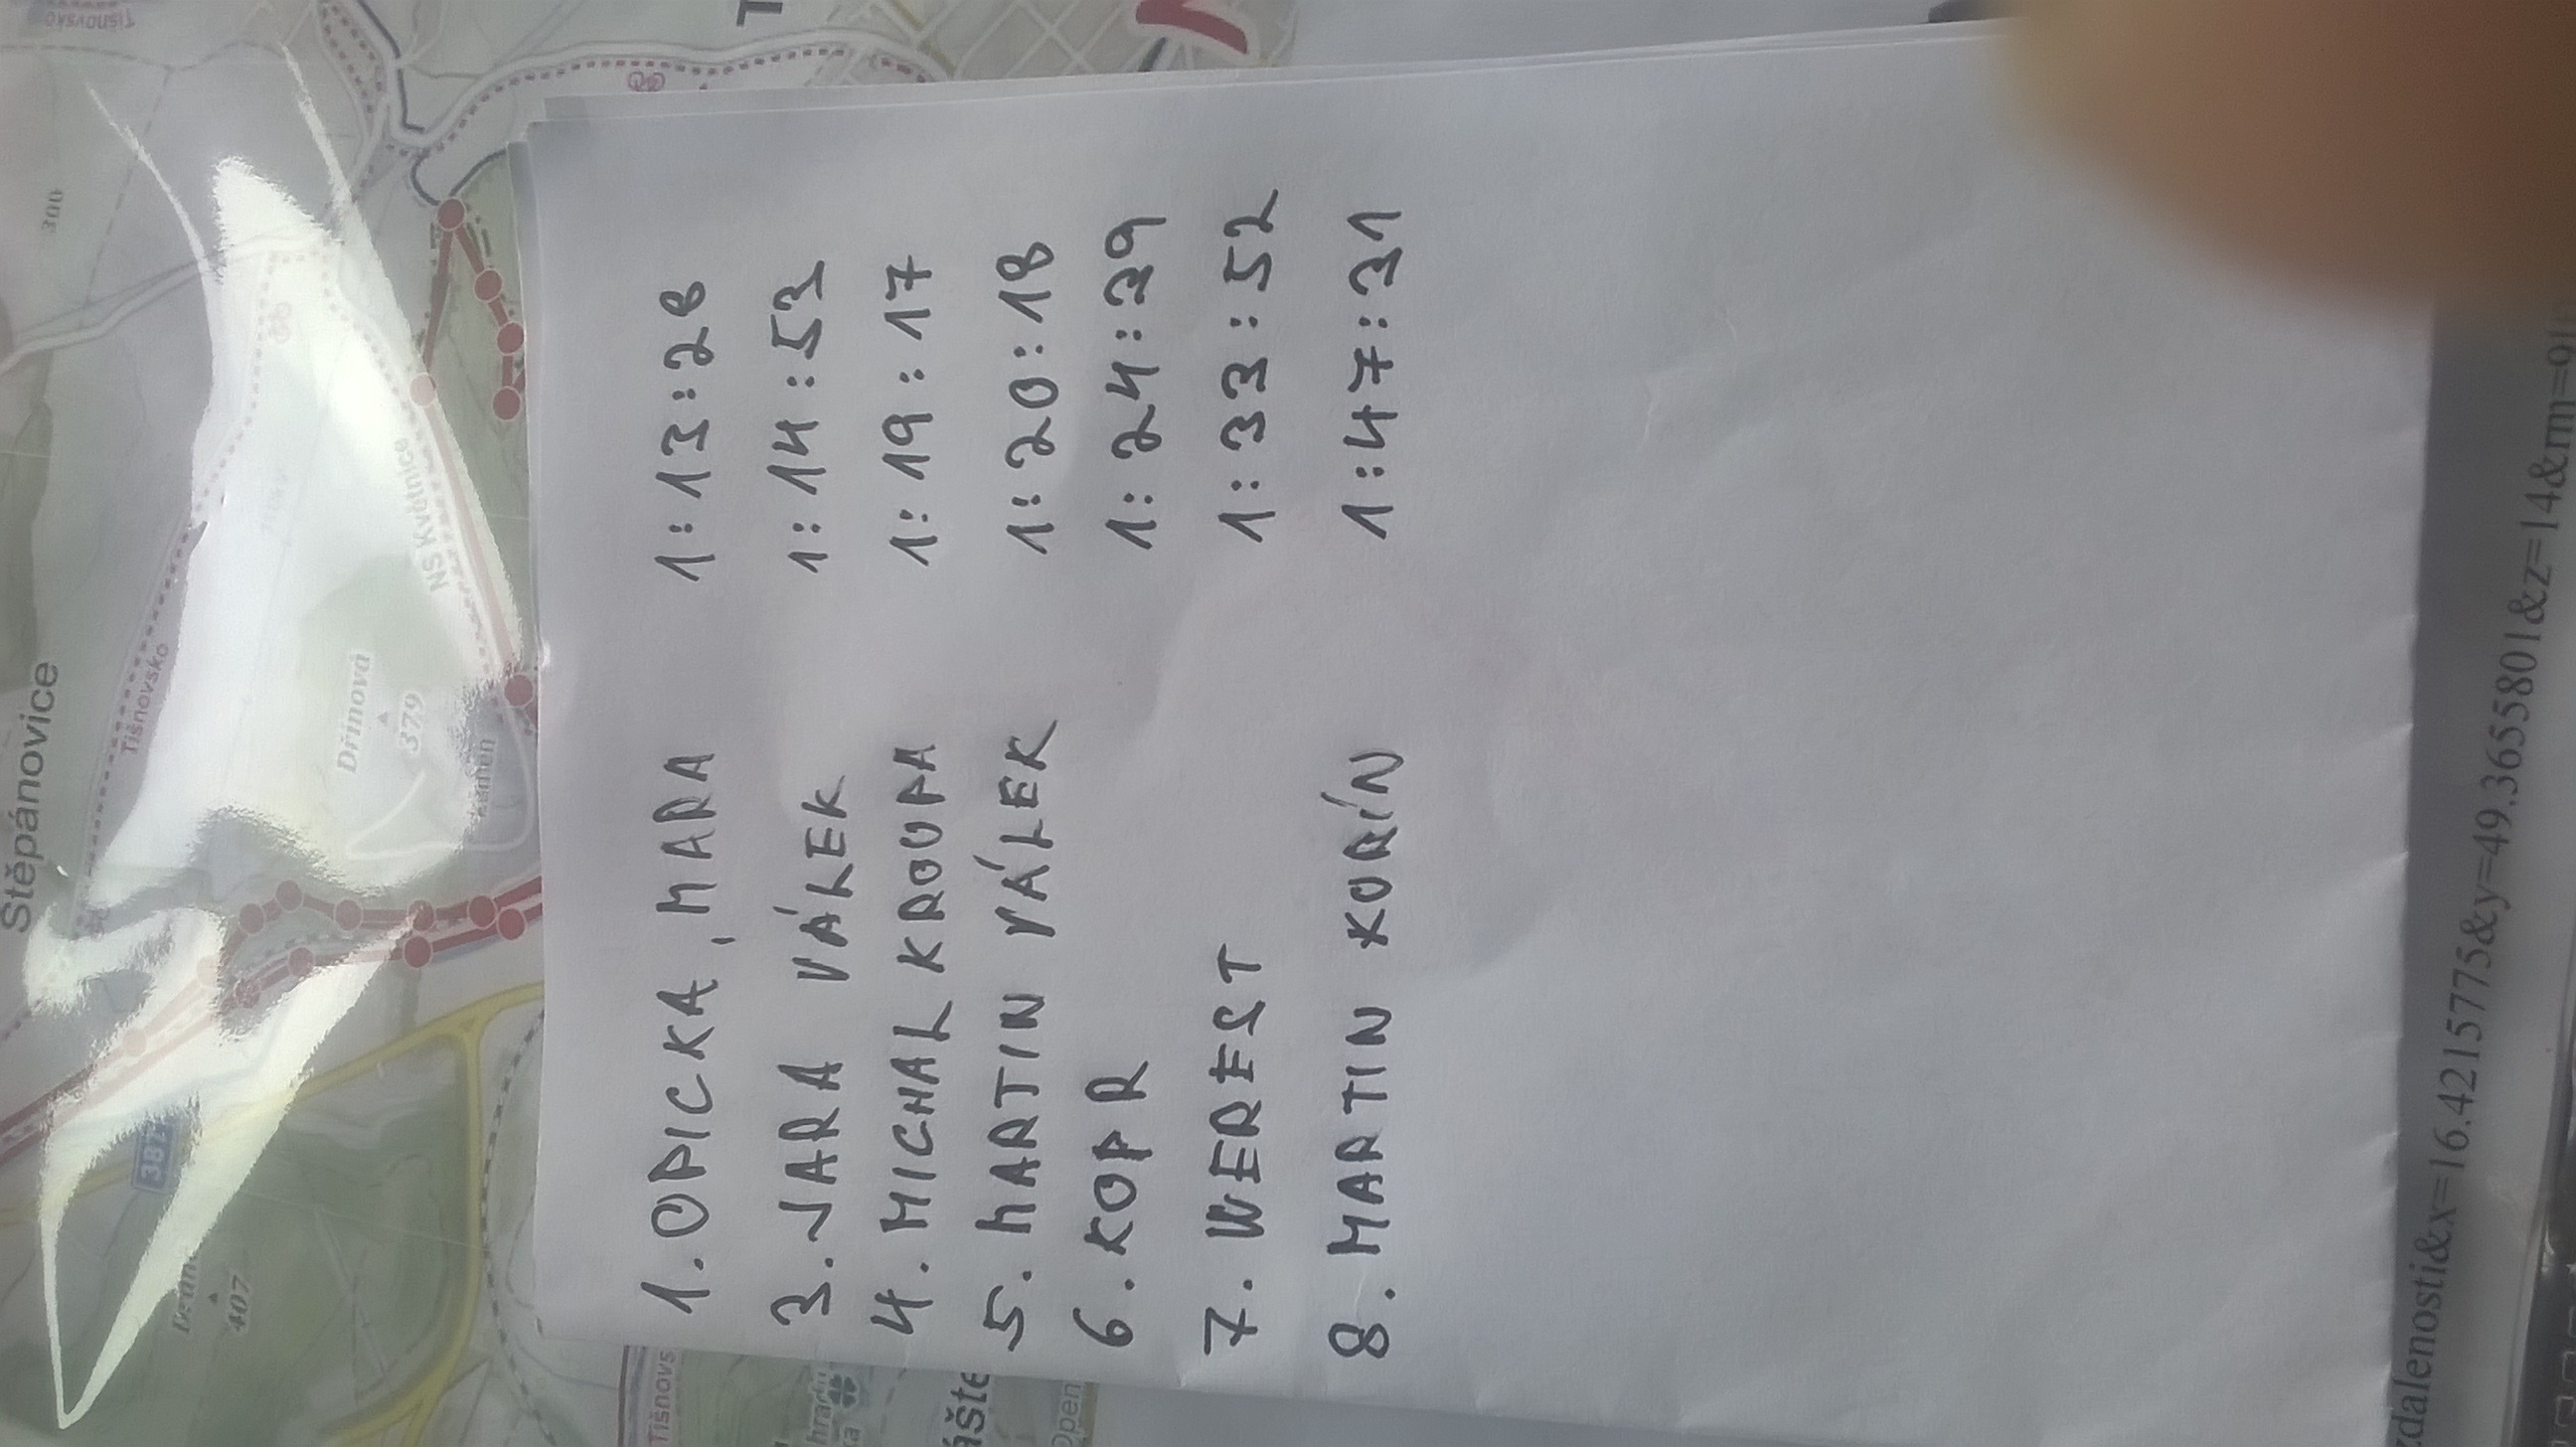 Štěpánovice
300
Tišnovsko
Tišnovsko
387
407
Dřínová
379
NS Květnice
Kámen
Tišnovs
1. OPICKA, MARA 1:13:28
3. JARA VÁLEK 1:14:53
4. MICHAL KROUPA 1:19:17
5. MARTIN VÁLEK 1:20:18
6. KOPR 1:24:39
7. WEREST 1:33:52
8. MARTIN KORÍN 1:47:31
hradu
ášte
Open
zdalenosti&x=16.4215775&y=49.3655801&z=14&rm=9